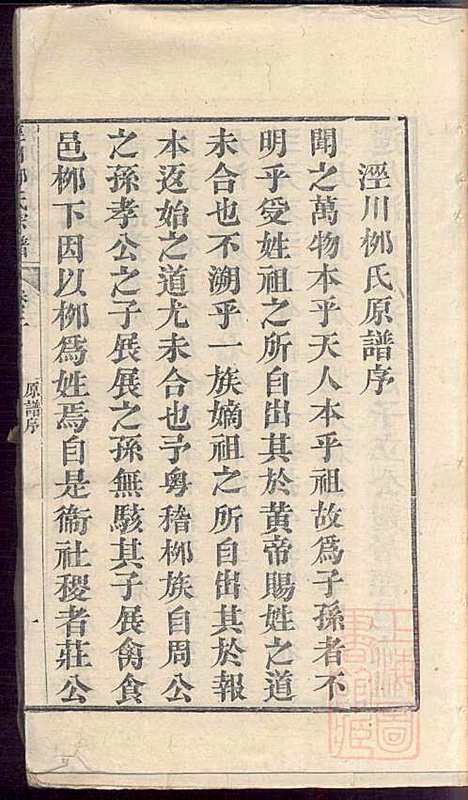 涇川桞氏原譜序
聞之萬物本乎天人本乎祖故為子孫者不
明乎受姓祖之所自出其於黃帝賜姓之道
未合也不溯乎一族嫡祖之所自出其於報
本返始之道尤未合也予粵稽桞族自周公
之孫孝公之子展展之孫無駭其子展禽食
邑桞下因以桞為姓焉自是衞社稷者莊公
原譜序
一